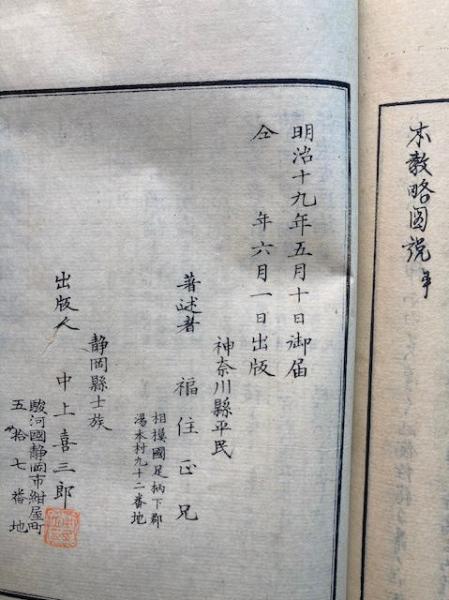 本教略図説
明治十九年五月十日御届
仝　年六月一日出版
神奈川縣平民
著述者　福住正兄
相模國足柄下郡
湯本村九十二番地
静岡縣士族
出版人　中上喜三郎
駿河國静岡市紺屋町
五拾七番地